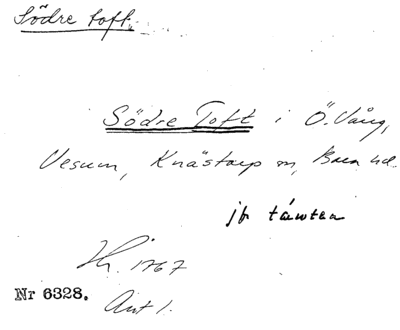 Södre toft.
Södre Toft i Ö. Vång,
Vesum, Knästorp sn, Bara hd.
jfr távten
Hr. 1767
Nr 6328.
Avt 1.